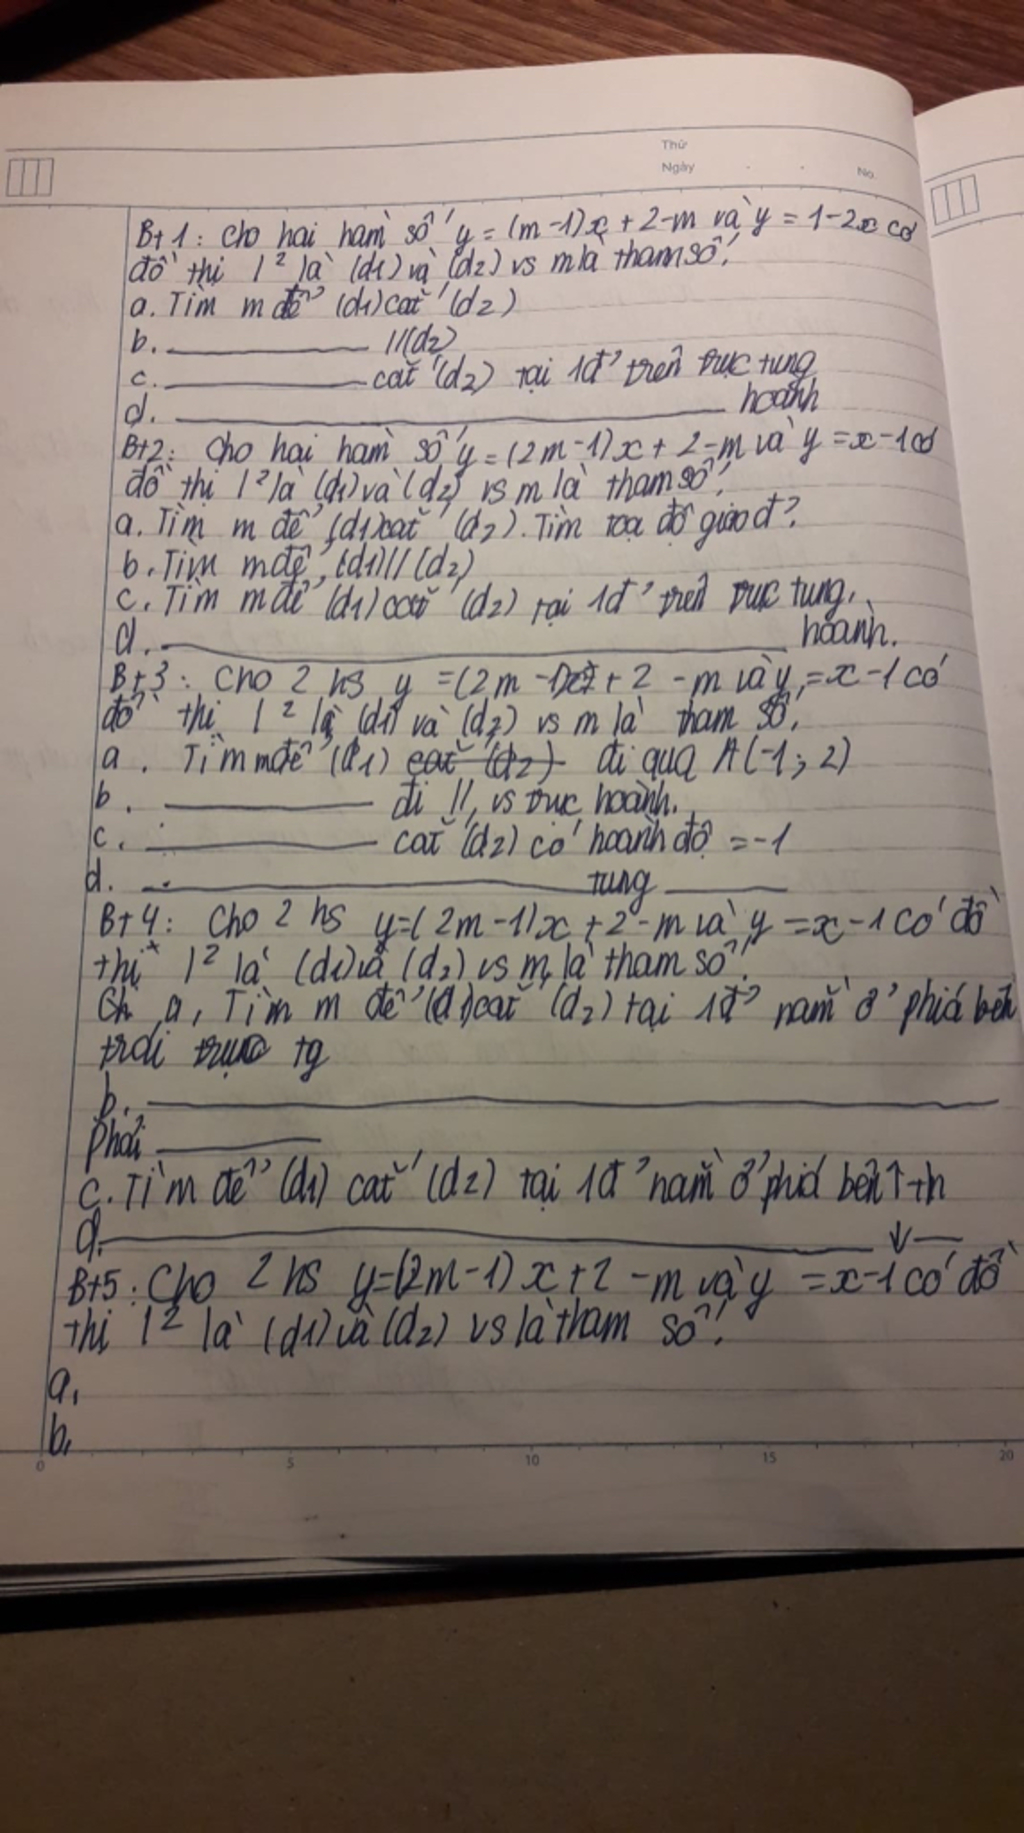 Thứ
Ngày
No.
Bt1: Cho hai hàm số y = (m-1)x + 2-m và y = 1-2x có
đồ thị l² là (d1) và (d2) vs m là tham số.
a. Tìm m để (d1) cắt (d2)
b. ______ //(d2)
c. ______ cắt (d2) tại 1đ' trên trục tung
d. ______ hoành
Bt2: Cho hai hàm số y = (2m-1)x + 2-m và y = x-1 có
đồ thị l² là (d1) và (d2) vs m là tham số.
a. Tìm m để (d1) cắt (d2). Tìm toạ độ giao đ?
b. Tìm m để (d1) // (d2)
c. Tìm m để (d1) cắt (d2) tại 1đ' trên trục tung.
d. ______ hoành.
Bt3: Cho 2 hs y = (2m-1)x + 2 - m và y = x-1 có
đồ thị l² là (d1) và (d2) vs m là tham số.
a. Tìm m để (d1) cắt (d2) đi qua A(-1; 2)
b. ______ đi // vs trục hoành.
c. ______ cắt (d2) có hoành độ = -1
d. ______ tung ______
Bt4: Cho 2 hs y = (2m-1)x + 2 - m và y = x-1 có đồ
thị l² là (d1) và (d2) vs m là tham số.
a, Tìm m để (d1) cắt (d2) tại 1đ' nằm ở phía bên
trái trục tg
b. ______
phải ______
c. Tìm để (d1) cắt (d2) tại 1đ' nằm ở phía bên ↑ th
d. ______ ↓ ___
Bt5: Cho 2 hs y = (2m-1)x + 2 - m và y = x-1 có đồ
thị l² là (d1) và (d2) vs là tham số.
a,
b,
0 5 10 15 20